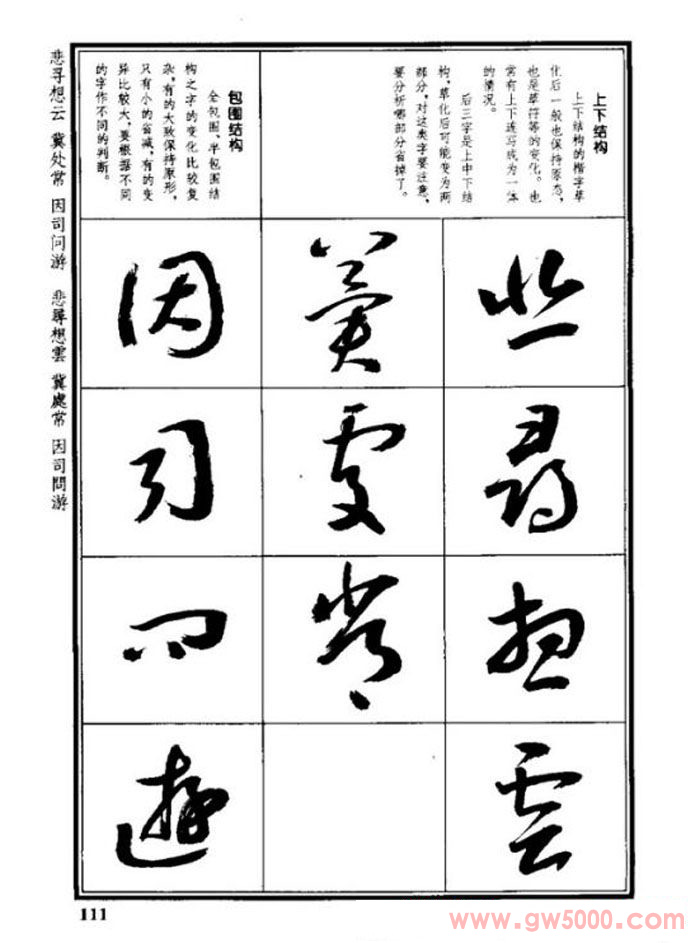 上下结构
上下结构的楷字草
化后一般也保持原态，
也是草符等的变化。也
常有上下连写成为一体
的情况。
后三字是上中下结
构，草化后可能变为两
部分，对这类字要注意，
要分析哪部分省掉了。
包围结构
全包围、半包围结
构之字的变化比较复
杂，有的大致保持原形，
只有小的省减，有的变
异比较大，要根据不同
的字作不同的判断。
悲尋想雲
冀處常
因司問遊
悲寻想云 冀处常 因司问游 悲尋想雲 冀處常 因司問游
111
www.gw5000.com